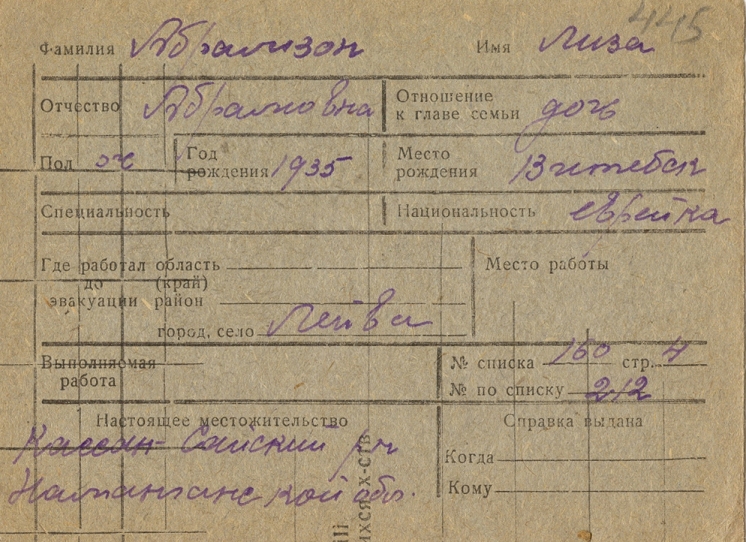 445
Фамилия Абрамзон Имя Лиза
Отчество Абрамовна Отношение к главе семьи дочь
Пол ж Год рождения 1935 Место рождения Витебск
Специальность Национальность еврейка
Где работал область
до (край)
эвакуации район
город, село
Место работы
Выполняемая
работа
№ списка 160 стр. 4
№ по списку 212
Настоящее местожительство
Кассан-Сайский р-н
Наманганской обл.
Справка выдана
Когда
Кому
ИХСЯ Х-СТВ